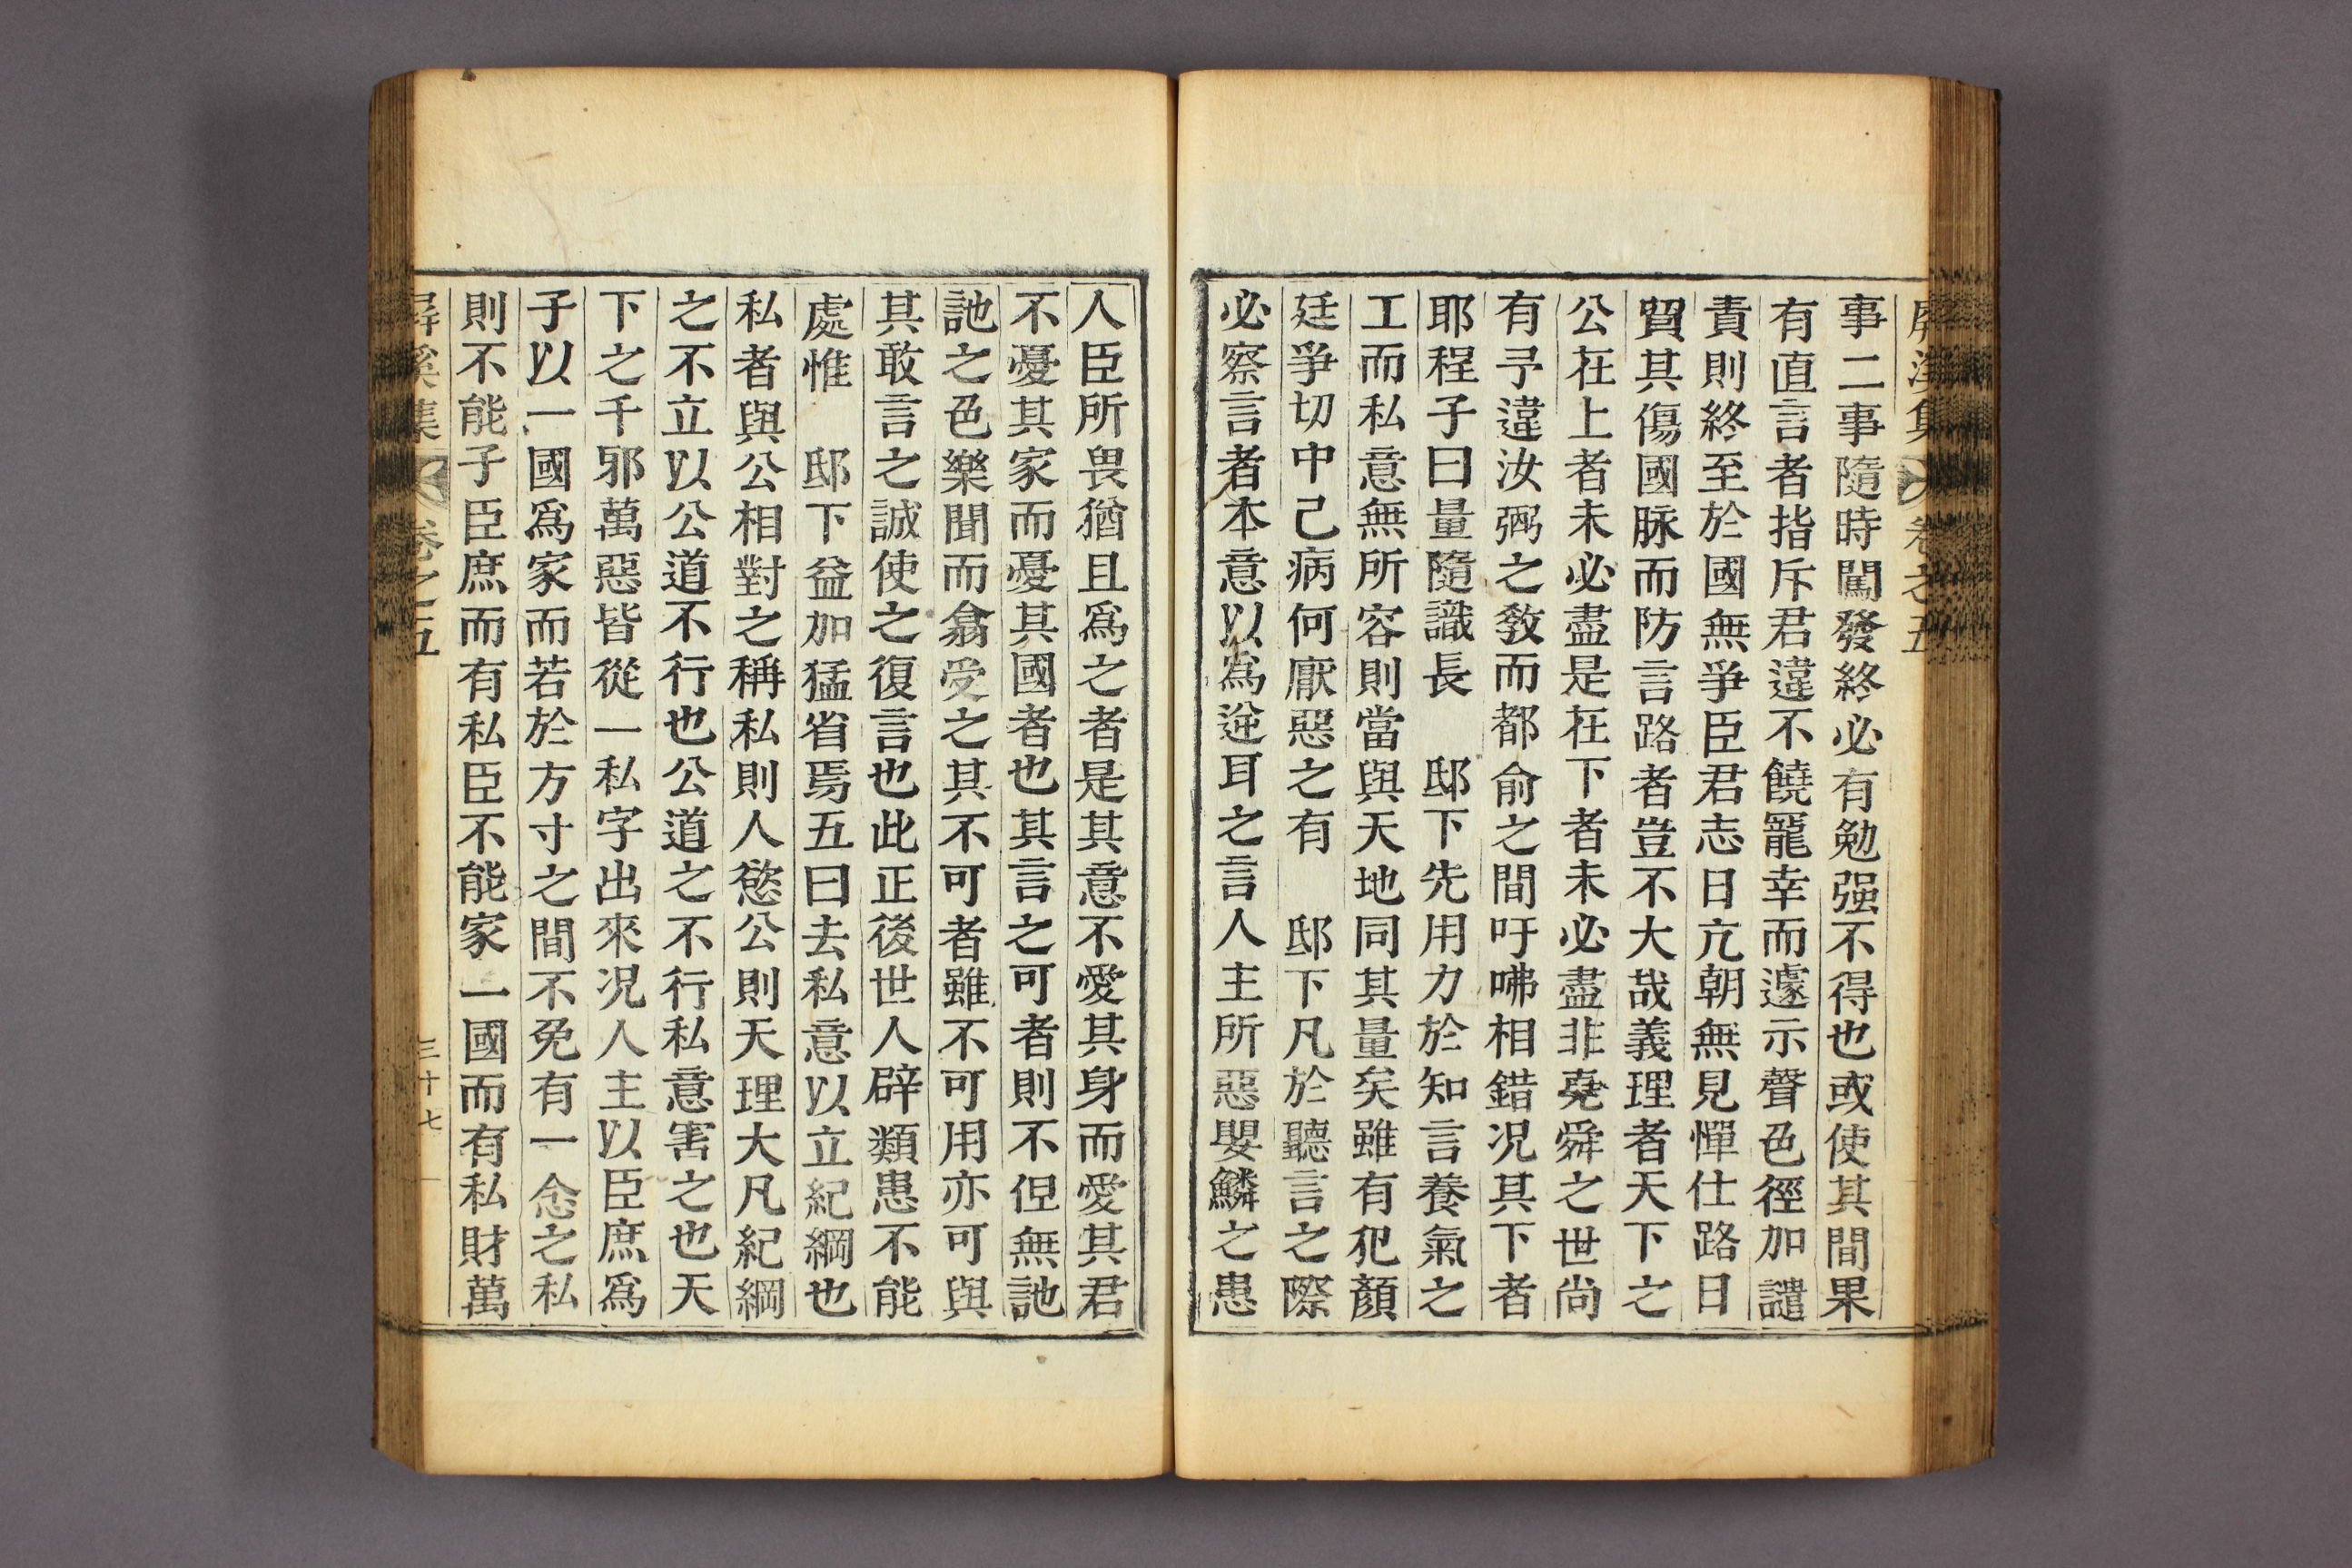 屛溪集 卷之五
事二事隨時闖發終必有勉强不得也或使其間果
有直言者指斥君違不饒寵幸而遽示聲色徑加譴
責則終至於國無爭臣君志日亢朝無見憚仕路日
貿其傷國脉而防言路者豈不大哉義理者天下之
公在上者未必盡是在下者未必盡非堯舜之世尙
有予違汝弼之敎而都兪之間吁咈相錯况其下者
耶程子曰量隨識長 邸下先用力於知言養氣之
工而私意無所容則當與天地同其量矣雖有犯顏
廷爭切中己病何厭惡之有 邸下凡於聽言之際
必察言者本意以爲逆耳之言人主所惡嬰鱗之患
人臣所畏猶且爲之者是其意不愛其身而愛其君
不憂其家而憂其國者也其言之可者則不但無訑
訑之色樂聞而翕受之其不可者雖不可用亦可與
其敢言之誠使之復言也此正後世人辟類患不能
處惟 邸下益加猛省焉五曰去私意以立紀綱也
私者與公相對之稱私則人慾公則天理大凡紀綱
之不立以公道不行也公道之不行私意害之也天
下之千邪萬惡皆從一私字出來况人主以臣庶爲
子以一國爲家而若於方寸之間不免有一念之私
則不能子臣庶而有私臣不能家一國而有私財萬
屛溪集 卷之五 三十七